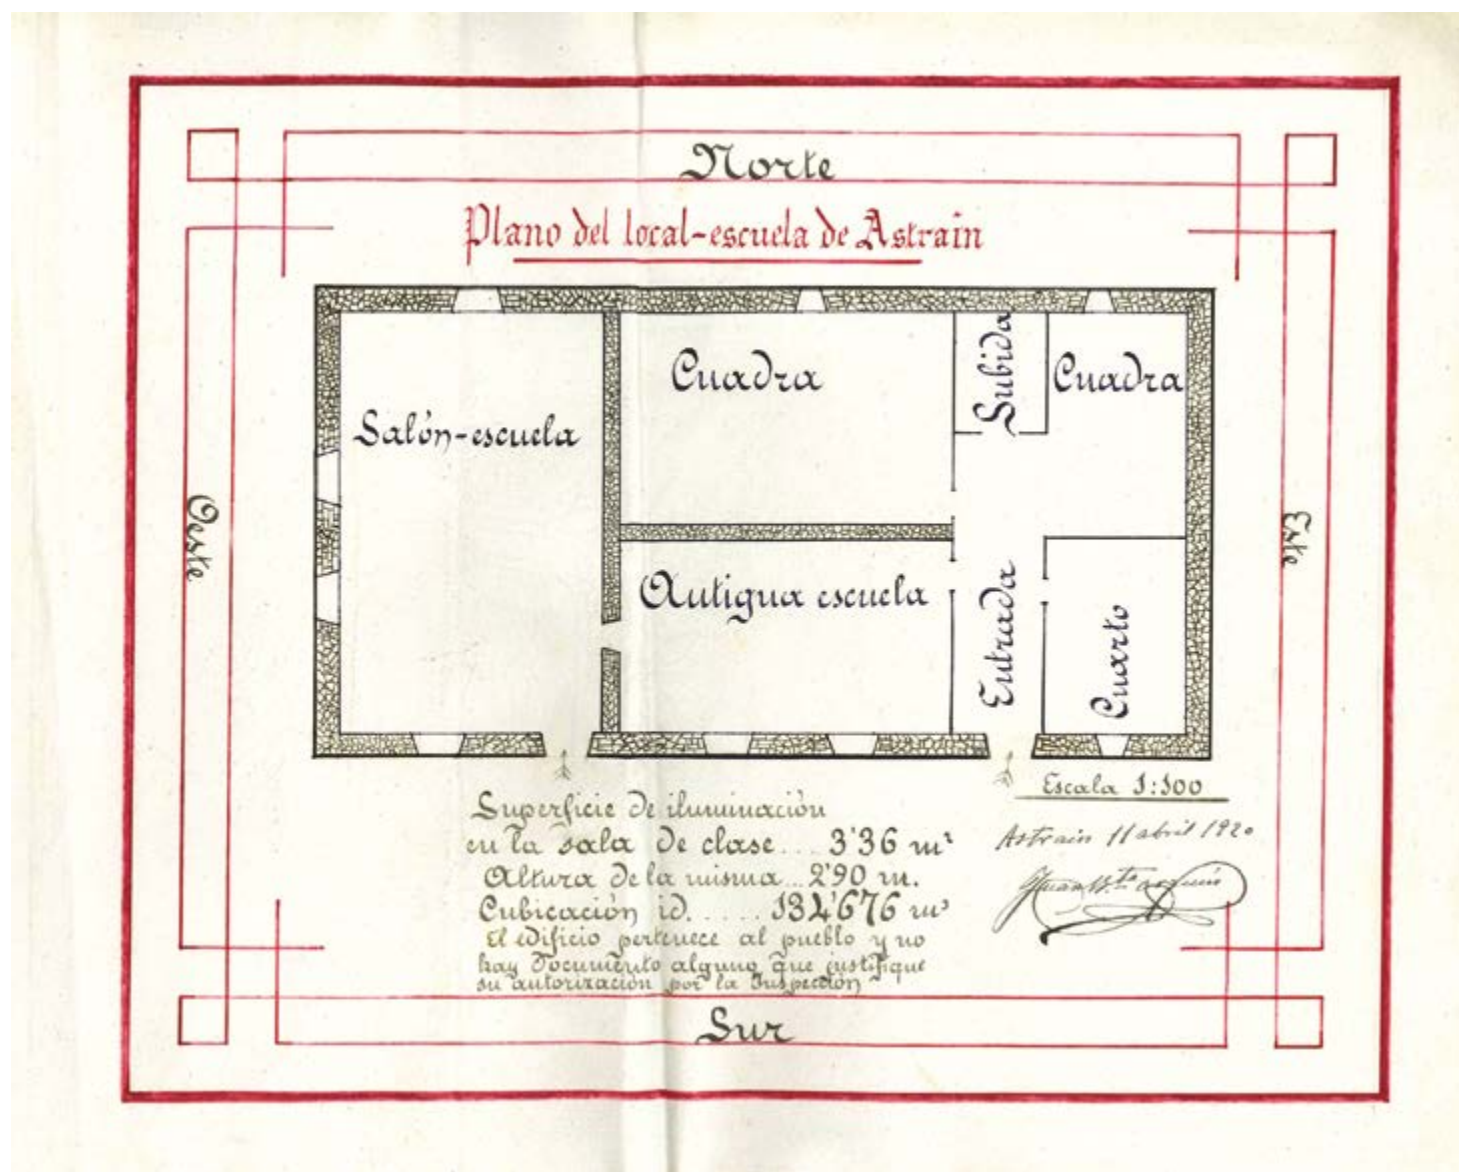 Norte
Plano del local-escuela de Astrain
Salón-escuela
Cuadra
Subida
Cuadra
Oeste
Este
Antigua escuela
Entrada
Cuarto
Superficie de iluminación
en la sala de clase... 3'36 m²
Altura de la misma... 2'90 m.
Cubicación id...... 134'676 m³
El edificio pertenece al pueblo y no
hay documento alguno que justifique
su autorización por la Inspección
Escala 1:100
Astrain 11 abril 1920
Sur